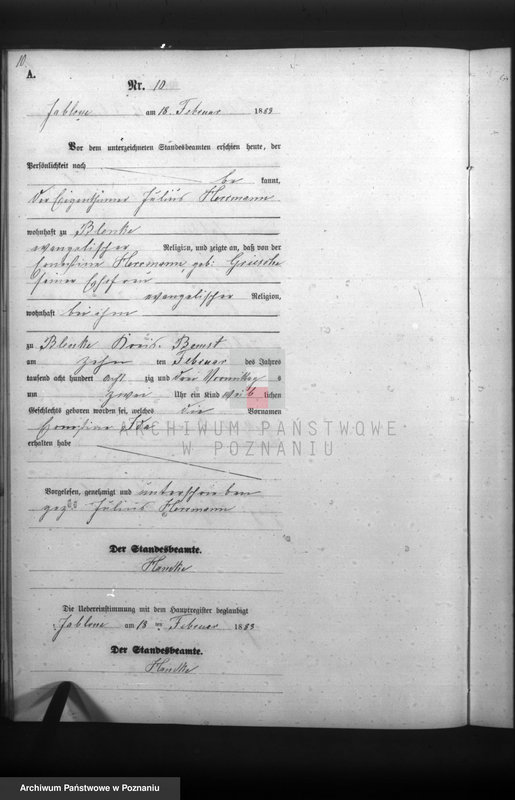 10.
A.
Nr. 10
Jablone am 13. Februar 1883
Vor dem unterzeichneten Standesbeamten erschien heute, der
Persönlichkeit nach
be kannt,
der Eigenthümer Julius Herrmann
wohnhaft zu Blenke
evangelischer Religion, und zeigte an, daß von der
Herrmann geb: Griesche
seiner Ehefrau
evangelischer Religion,
wohnhaft bei ihm
zu Blenke Kreis Bomst
am zehn ten Februar des Jahres
tausend acht hundert acht zig und drei Vormittag s
um zwei Uhr ein Kind weib lichen
Geschlechts geboren worden sei, welches die Vornamen
Ida
erhalten habe
Vorgelesen, genehmigt und unterschrieben
gez: Julius Herrmann
Der Standesbeamte.
Handke
Die Uebereinstimmung mit dem Hauptregister beglaubigt
Jablone am 13 ten Februar 1883
Der Standesbeamte.
Handke
ARCHIWUM PAŃSTWOWE
W POZNANIU
Archiwum Państwowe w Poznaniu